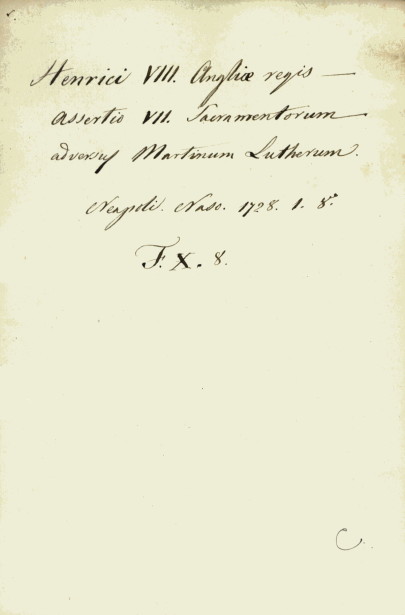 Henrici VIII. Angliæ regis —
Assertio VII. Sacramentorum —
adversus Martinum Lutherum.
Neapoli. Naso. 1728. 1. 8.°
F. X. 8.
C.